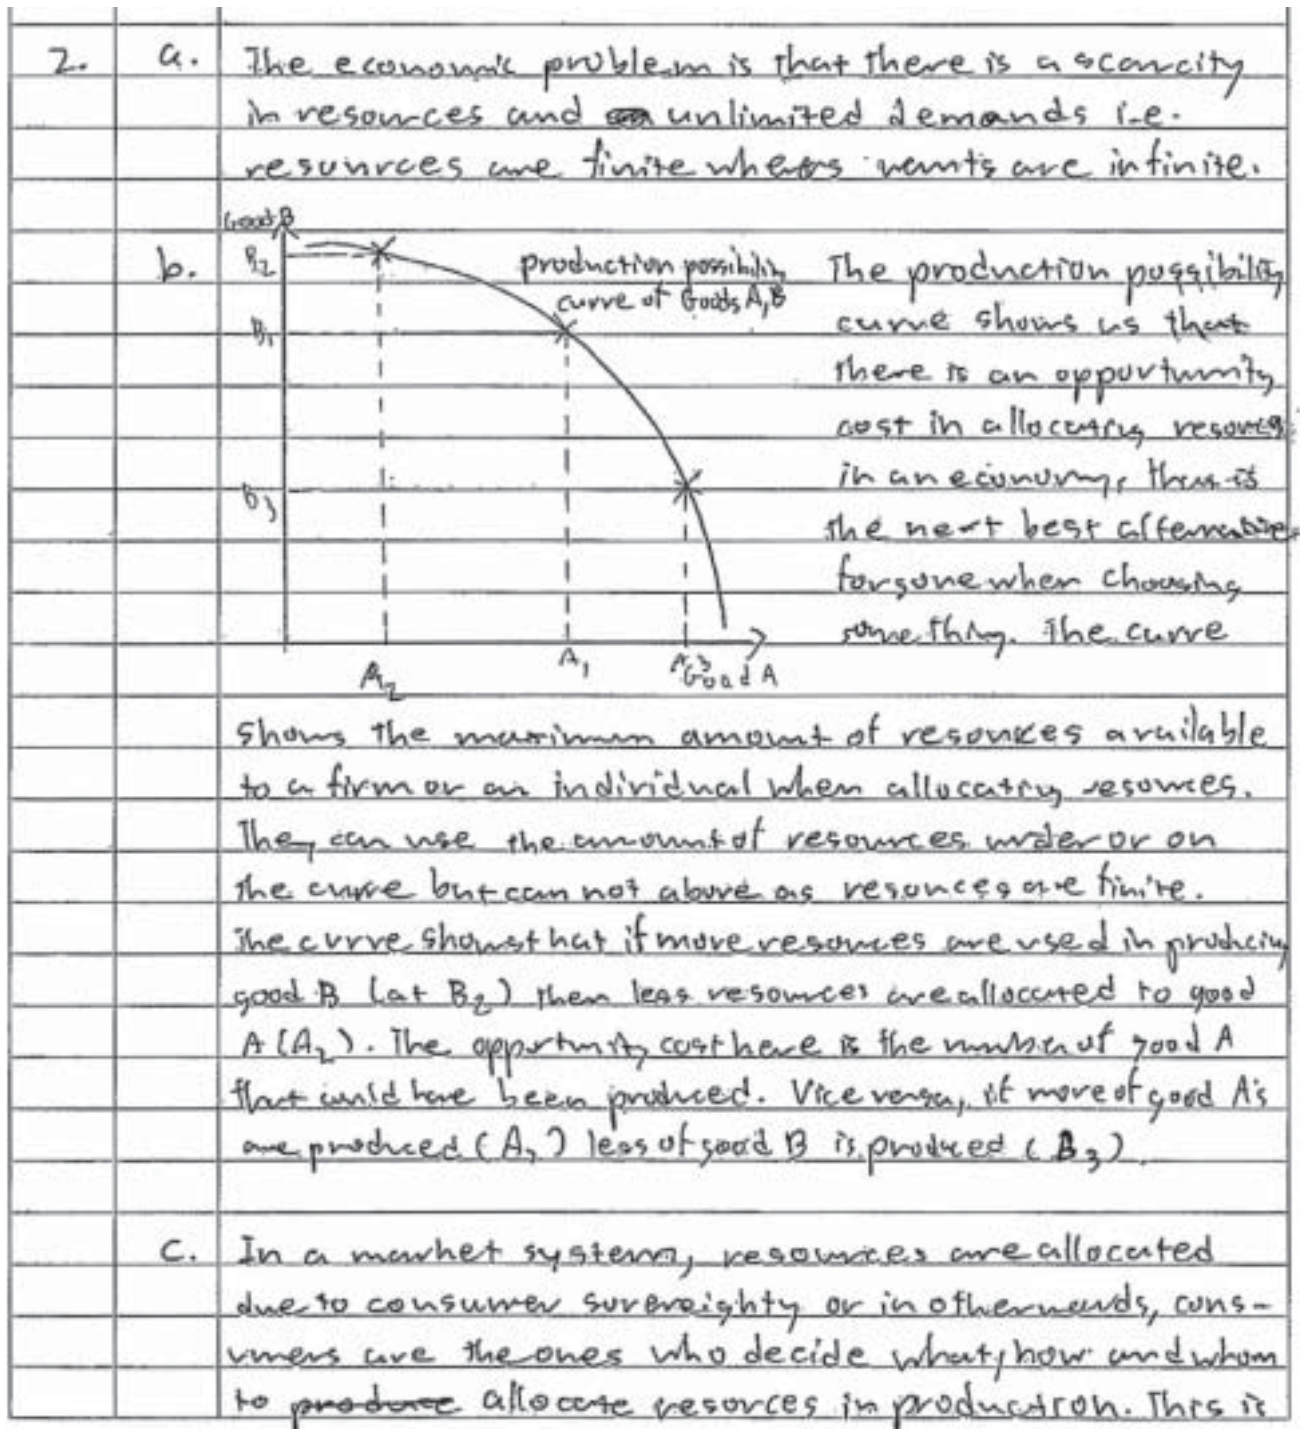 2. a. The economic problem is that there is a scarcity
in resources and unlimited demands i.e.
resources are finite wheras wants are infinite.
b.
Good B
B2
B1
B3
A2
A1
A3
Good A
production possibility
curve of Goods A, B
The production possibility
curve shows us that
there is an opportunity
cost in allocating resources
in an economy, that is
the next best alternative
forgone when choosing
something. The curve
shows the maximum amount of resources available
to a firm or an individual when allocating resources.
They can use the amount of resources under or on
the curve but can not above as resources are finite.
The curve shows that if more resources are used in producing
good B (at B2) then less resources are allocated to good
A (A2). The opportunity cost here is the number of good A
that could have been produced. Vice versa, if more of good A's
are produced (A3) less of good B is produced (B3).
c. In a market system, resources are allocated
due to consumer sovereighty or in other words, cons-
umers are the ones who decide what, how and whom
to produce allocate resorces in production. This is